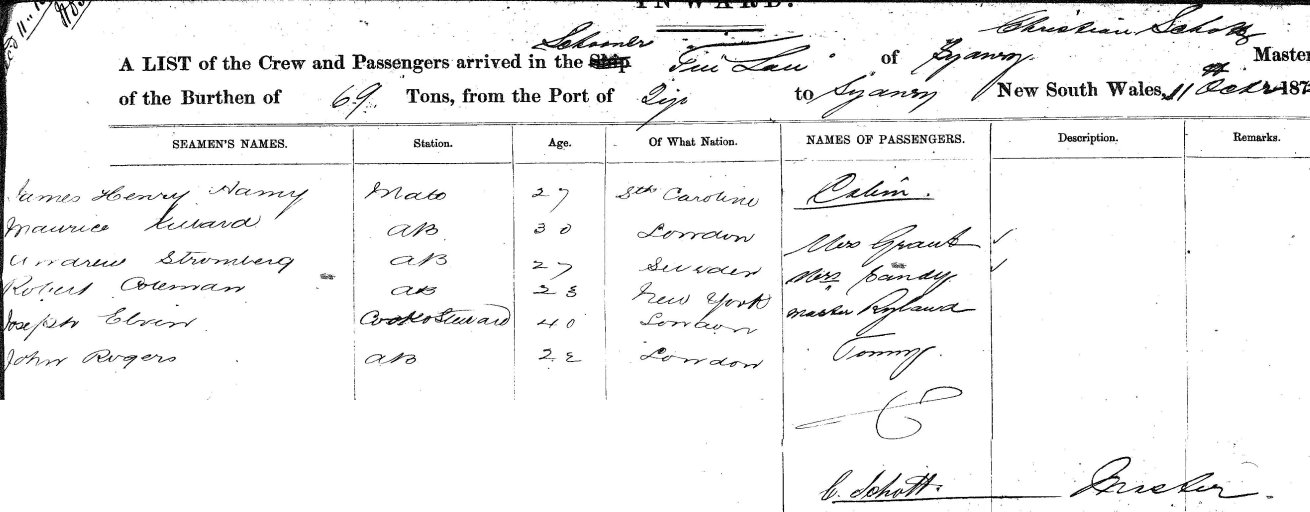 INWARD.
Christian Schott
Schooner
A LIST of the Crew and Passengers arrived in the Ship Tui Lau of Sydney Master
of the Burthen of 69 Tons, from the Port of Fiji to Sydney New South Wales, 11 Octr 187
SEAMEN'S NAMES. Station. Age. Of What Nation. NAMES OF PASSENGERS. Description. Remarks.
James Henry Mate 27 Sth Caroline Cabin.
Maurice AB 30 London Mrs Grant ✓
Andrew Stromberg AB 27 Sweden Mrs Candy ✓
Robert Coleman AB 23 New York Master Ryland
Joseph Elvin Cook & Steward 40 London
John Rogers AB London Tommy.
C. Schott. Master.